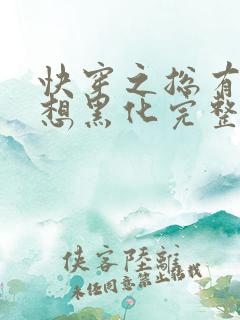 快穿之总有
想黑化完整
侠客陆离
未经同意禁止搭我